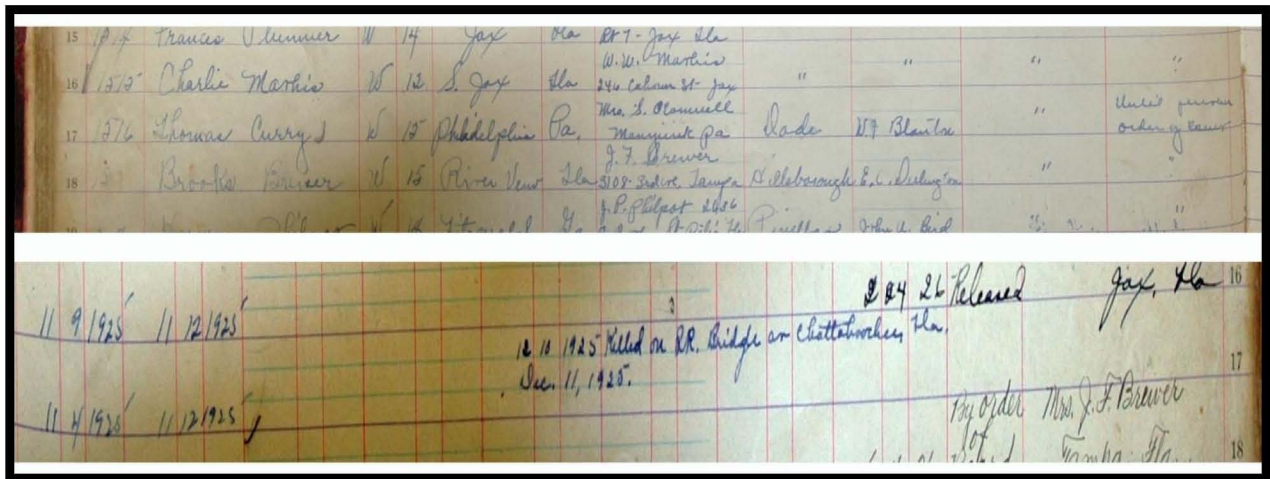 15 Frances Plummer W 14 Jax Fla Rt 7 - Jax Fla
W. W. Mathis
16 1515 Charlie Mathis W 12 S. Jax Fla 246 Calhoun St - Jax " " "
Mrs. S. Clanwell
17 1516 Thomas Curry W 15 Philadelphia Pa. Manyunk Pa Dade W F Blanton " Until further order of Court
J. F. Brewer
18 Brooks Brewer W 15 River View Fla 3108 - 3rd Ave. Tampa Hillsborough E. C. Darlington " "
J. P. Philpot 2636
Ga Pinellas John U. Bird "
2 24 26 Released Jax, Fla 16
11 9 1925 11 12 1925
12 10 1925 Killed on RR. Bridge at Chattahoochee, Fla.
Dec. 11, 1925. 17
11 4 1925 11 12 1925 By order Mrs. J. F. Brewer
of Tampa Fla. 18